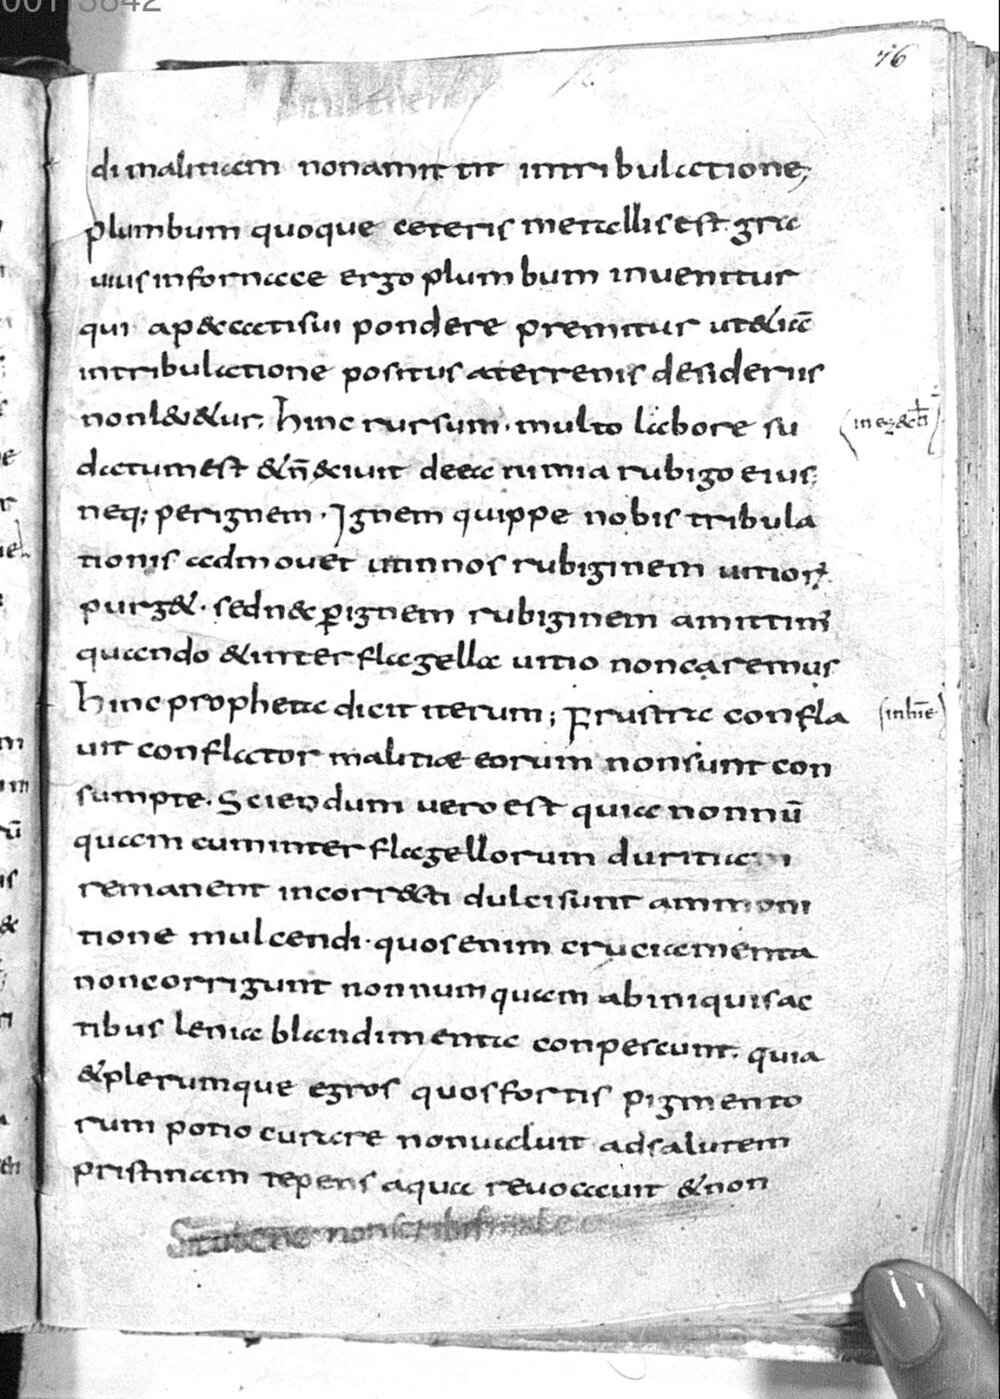 76
di malitiam non amittit in tribulatione;
plumbum quoque ceteris metallis est gra
vius in fornace ergo plumbum invenitur
qui a peccati sui pondere premitur ut etiā
in tribulatione positus a terrenis desideriis
non levetur. hinc rursum. multo labore su
datum est & ñ exivit de ea nimia rubigo eius;
neq; per ignem. Ignem quippe nobis tribula
tionis admovet ut in nos rubiginem vitioꝝ
purget. sed nec ꝑ ignem rubiginem amittim̄
quando & inter flagella vitio non caremus
hinc propheta dicit iterum; Frustra confla
vit conflator malitiæ eorum non sunt con
sumpte. Sciendum vero est quia non nū
quam cum inter flagellorum duritiam
remanent incorrecti dulci sunt ammoni
tione mulcendi. quos enim cruciamenta
non corrigunt non numquam ab iniquis ac
tibus lenia blandimenta conpescunt. quia
& plerumque egros quos fortis pigmento
rum potio curare non valuit ad salutem
pristinam tepens aqua revocavit & non
in ezecħ
in hiē